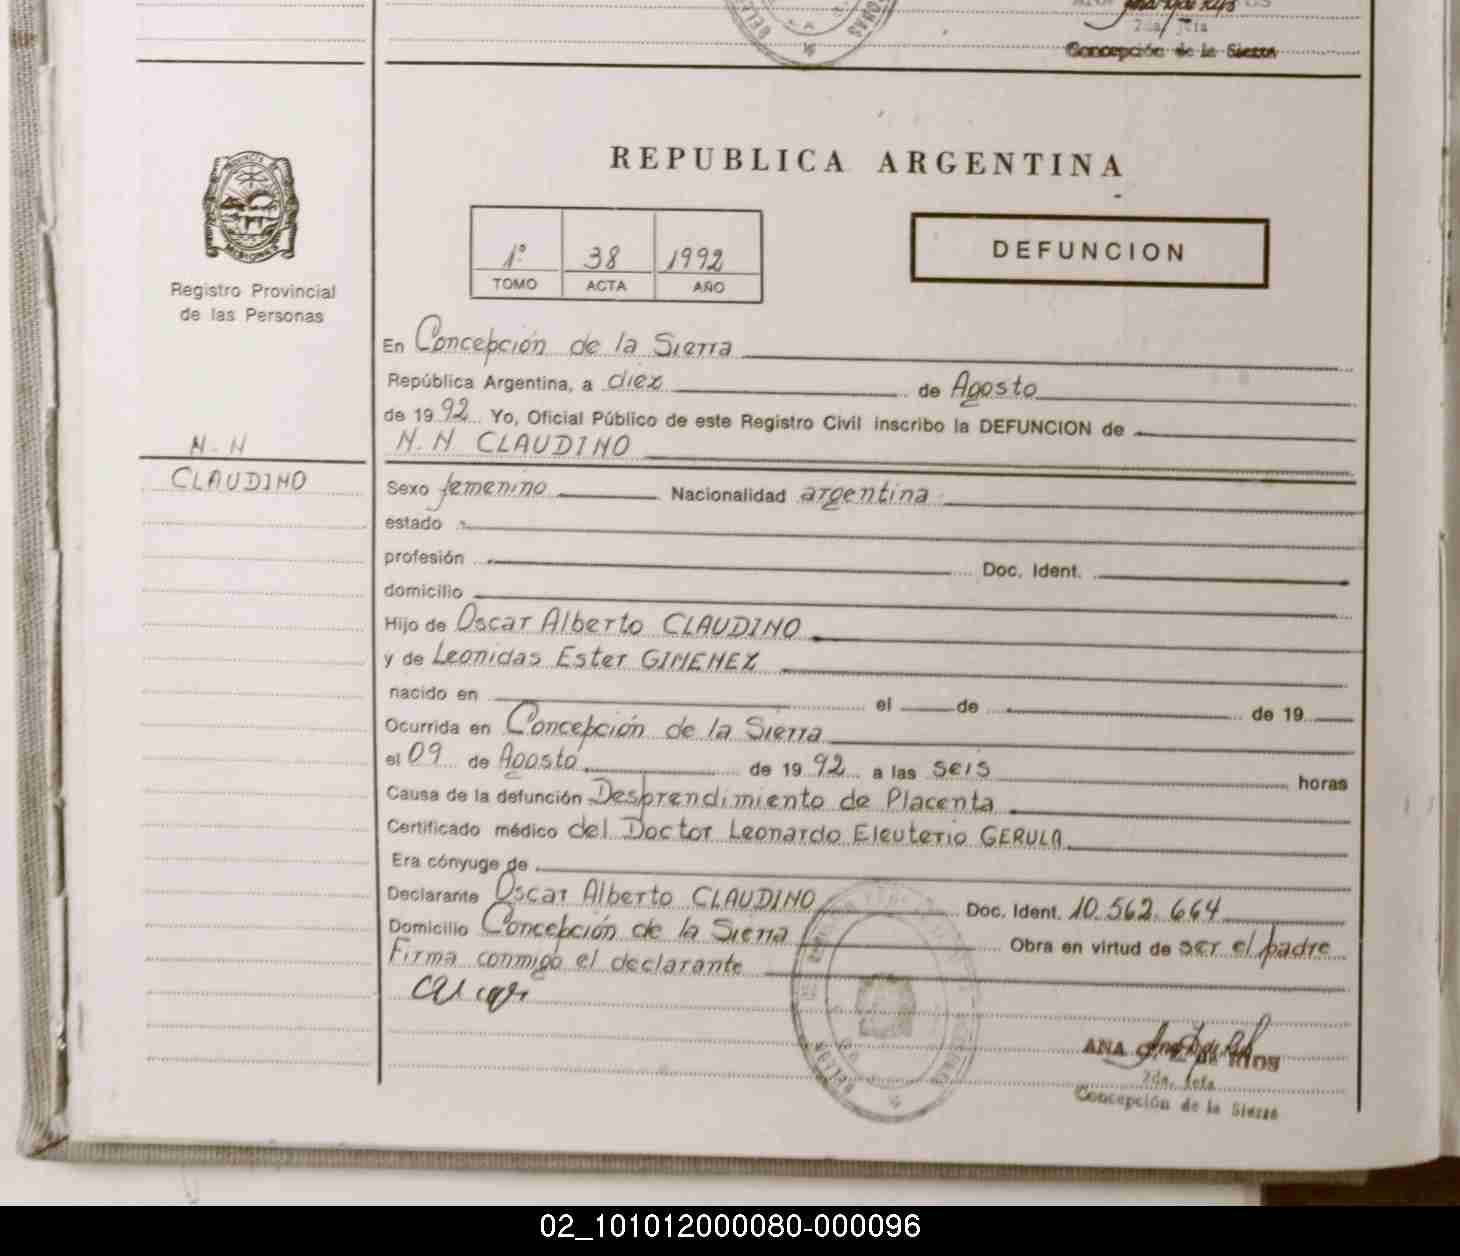 Concepción de la Sierra
REPUBLICA ARGENTINA
1º 38 1992
TOMO ACTA AÑO
DEFUNCION
Registro Provincial
de las Personas
N.N
CLAUDINO
En Concepción de la Sierra
República Argentina, a diez de Agosto
de 1992 Yo, Oficial Público de este Registro Civil inscribo la DEFUNCION de
N.N CLAUDINO
Sexo femenino Nacionalidad argentina
estado
profesión Doc. Ident.
domicilio
Hijo de Oscar Alberto CLAUDINO
y de Leonidas Ester GIMENEZ
nacido en el de de 19
Ocurrida en Concepción de la Sierra
el 09 de Agosto de 1992 a las seis horas
Causa de la defunción Desprendimiento de Placenta
Certificado médico del Doctor Leonardo Eleuterio GERULA
Era cónyuge de
Declarante Oscar Alberto CLAUDINO Doc. Ident. 10.562.664
Domicilio Concepción de la Sierra Obra en virtud de ser el padre
Firma conmigo el declarante
ANA
2da. Jefa
Concepción de la Sierra
02_101012000080-000096